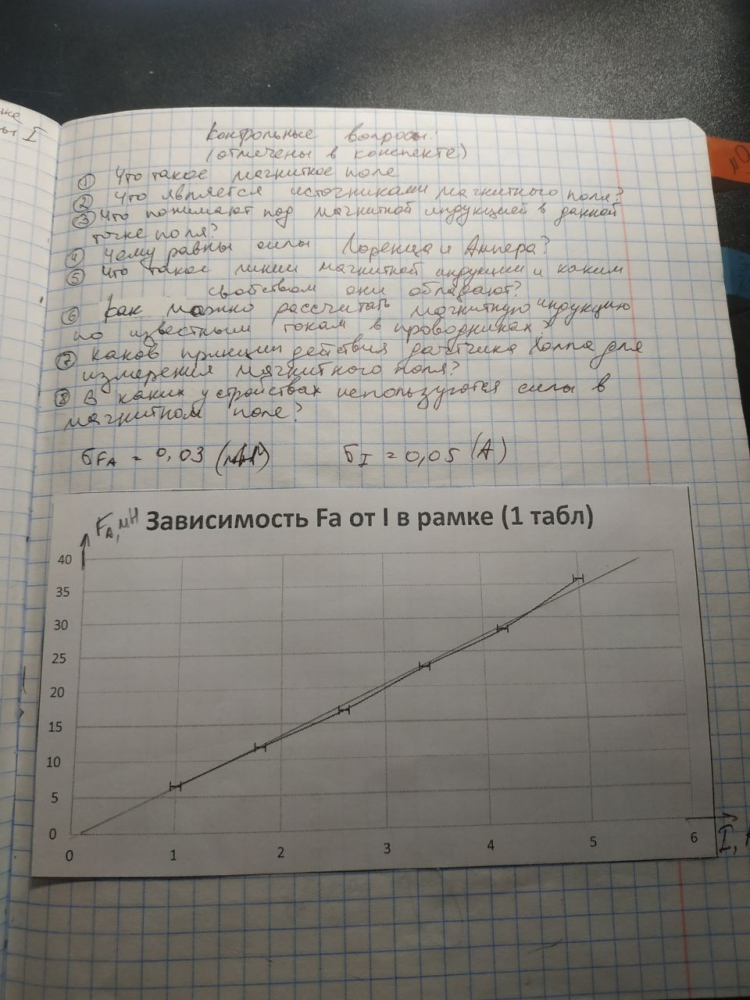 Контрольные вопросы:
(отмечены в конспекте)
① Что такое магнитное поле
② Что является источниками магнитного поля?
③ Что понимают под магнитной индукцией в данной
точке поля?
④ Чему равны силы Лоренца и Ампера?
⑤ Что такое линии магнитной индукции и каким
свойством они обладают?
⑥ Как можно рассчитать магнитную индукцию
по известным токам в проводниках?
⑦ Каков принцип действия датчика Холла для
измерения магнитного поля?
⑧ В каких устройствах используются силы в
магнитном поле?
σFA = 0,03 (мН) σI = 0,05 (А)
FA, мН Зависимость Fa от I в рамке (1 табл)
40
35
30
25
20
15
10
5
0
0 1 2 3 4 5 6 I,